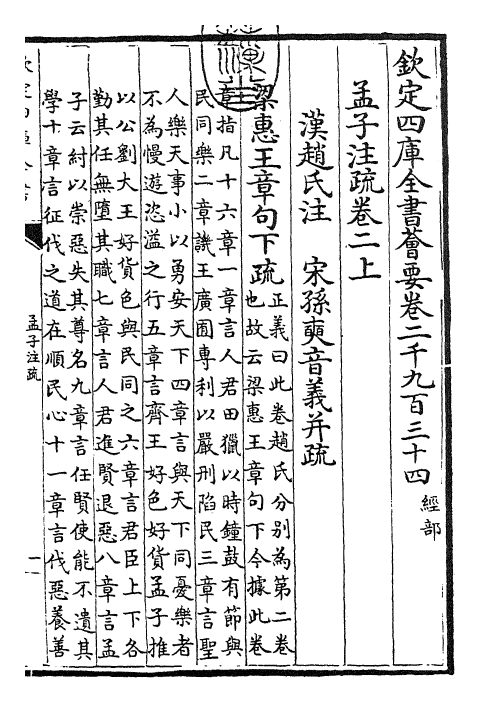 欽定四庫全書薈要卷二千九百三十四 經部
孟子注疏卷二上
漢趙氏注 宋孫奭音義并疏
梁惠王章句下疏
正義曰此卷趙氏分别為第二卷
也故云梁惠王章句下今據此卷
章指凡十六章一章言人君田獵以時鐘鼓有節與
民同樂二章譏王廣囿專利以嚴刑陷民三章言聖
人樂天事小以勇安天下四章言與天下同憂樂者
不為慢遊恣溢之行五章言齊王好色好貨孟子推
以公劉大王好貨色與民同之六章言君臣上下各
勤其任無墮其職七章言人君進賢退惡八章言孟
子云紂以崇惡失其尊名九章言任賢使能不遺其
學十章言征伐之道在順民心十一章言伐惡養善
孟子注疏
一